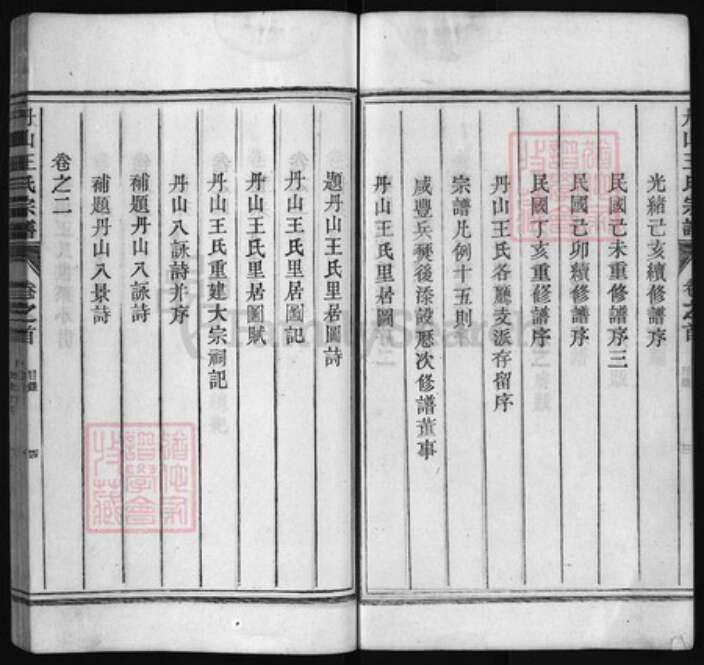 丹山王氏宗譜 卷之首
光緒己亥續修譜序
民國己未重修譜序三
民國己卯續修譜序
民國丁亥重修譜序
丹山王氏各廳支派存留序
宗譜凡例十五則
咸豐兵燹後添設歷次修譜董事
丹山王氏里居圖
題丹山王氏里居圖詩
丹山王氏里居圖記
丹山王氏里居圖賦
丹山王氏重建大宗祠記
丹山八詠詩并序
補題丹山八詠詩
補題丹山八景詩
卷之二
丹山王氏宗譜 卷之首
譜學會
FamilySearch